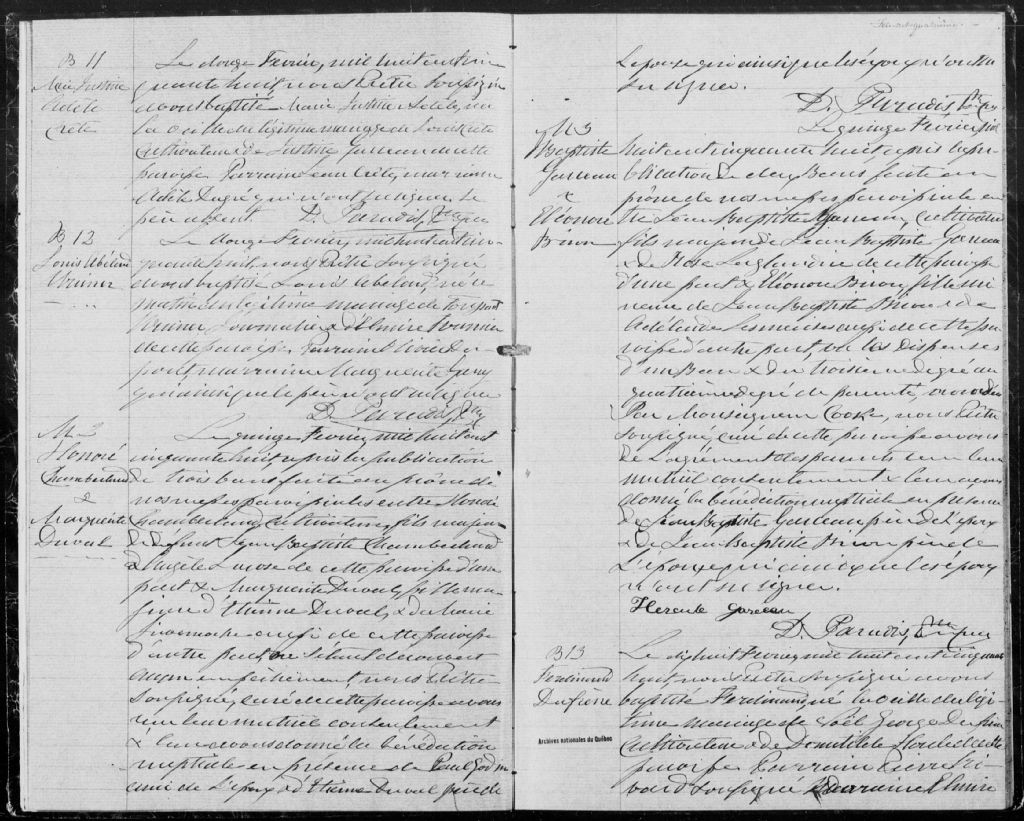 B 11
Marie Justine
Adèle
Crête
Le douze Fevrier, mil huit cent cin
quante huit, nous Prêtre soussigné
avons baptisé Marie Justine Adèle, née
la veille du légitime mariage de Louis Crête
Cultivateur & de Justine Garceau de cette
paroisse Parrain Jean Crête, marraine
Adèle Dupré qui n'ont su signer. Le
père absent. D. Paradis, Ptre Curé
B 12
Louis Abélard
Le douze Fevrier, mil huit cent cin-
quante huit, nous Prêtre soussigné
avons baptisé Louis Abélard, né ce
matin du légitime mariage de Toussaint
Journalier & d'Elmire
de cette paroisse Parrain Olivier Du-
pont, marraine Marguerite
qui ainsi que le père n'ont su signer
D. Paradis, Ptre
M 2
Honoré
Chamberland
&
Marguerite
Duval
Le quinze Fevrier, mil huit cent
cinquante huit, après la publication
de trois bans faite au prône de
nos messes paroissiales entre Honoré
Chamberland, Cultivateur, fils majeur
de defunt Jean Baptiste Chamberland
& d'Angèle de cette paroisse d'une
part & Marguerite Duval, fille ma-
jeure d'Etienne Duval, & de Marie
aussi de cette paroisse
d'autre part, ne s'étant découvert
aucun empêchement, nous Prêtre
soussigné, curé de cette paroisse avons
reçu leur mutuel consentement
& leur avons donné la bénédiction
nuptiale en presence de Paul
ami de l'époux & d'Etienne Duval père de
L'épouse qui ainsi que les époux n'ont su
su signer.
D. Paradis Ptre Curé
M 3
J Baptiste
Garceau
&
Eléonore
Brion
Le quinze Février mil
huit cent cinquante huit après la pu-
blication de deux Bans faite au
prône de nos messes paroissiales en
tre Jean Baptiste Garceau, Cultivateur
fils majeur de Jean Baptiste Garceau
& de Rose de cette paroisse
d'une part & Eléonore Brion, fille mi-
neure de Jean Baptiste Brion & de
Adélaide aussi de cette pa-
roisse d'autre part, vu les Dispenses
d'un Ban & du troisième degré au
quatrième degré de parenté, accordées
Par Monseigneur Cooke, nous Prêtre
soussigné, curé de cette paroisse avons
de l'agrément des parents reçu leur
mutuel consentement & leur avons
donné la bénédiction nuptiale en presence
de Jean Baptiste Garceau père de l'époux
& de Jean Baptiste Brion père de
L'épouse qui ainsi que les époux
n'ont su signer.
Hercule Garceau
D. Paradis, Ptre
B 13
Ferdinand
Dufresne
Le dix huit Fevrier, mil huit cent cinquante
huit, nous Prêtre soussigné avons
baptisé Ferdinand, né la veille du légi-
time mariage de Joël George Dufresne
Cultivateur & de Domitilde de cette
paroisse Parrain Pierre
soussigné Marraine Elmire
Archives nationales du Québec